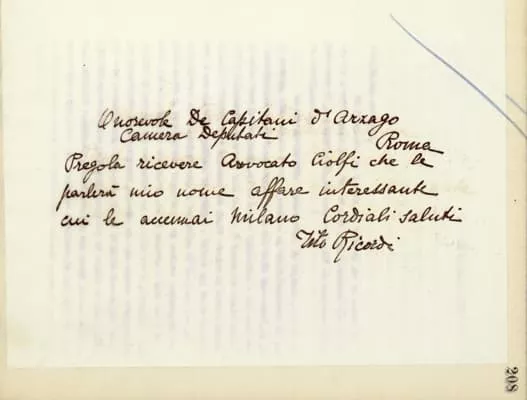 Onorevole De Capitani d'Arzago
Camera Deputati
Roma
Pregola ricevere Avvocato Ciolfi che le
parlerà mio nome affare interessante
cui le accennai Milano Cordiali saluti
Tito Ricordi
208